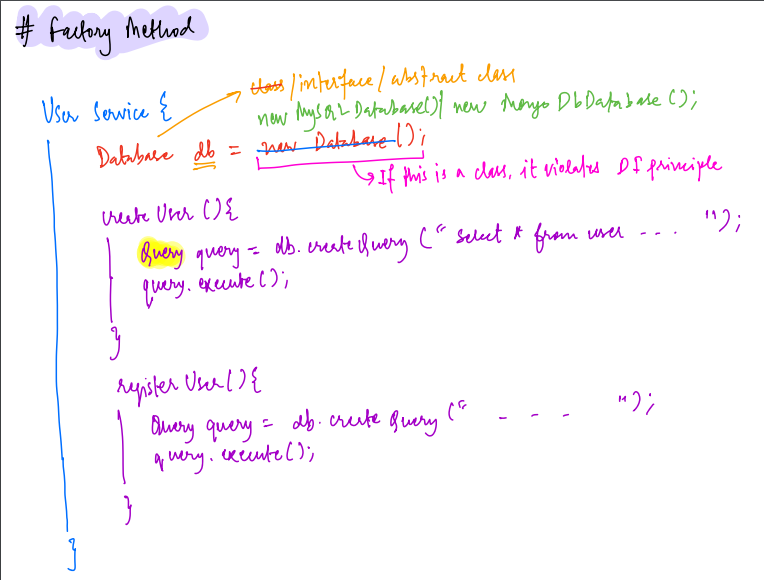 # Factory Method
class / interface / abstract class
User Service {
new MySQL Database() | new Mongo DbDatabase ();
Database db = new Database ();
If this is a class, it violates DI principle
create User () {
Query query = db. create Query (" select * from user - - - ");
query. execute ();
}
register User () {
Query query = db. create Query (" - - - ");
query. execute ();
}
}